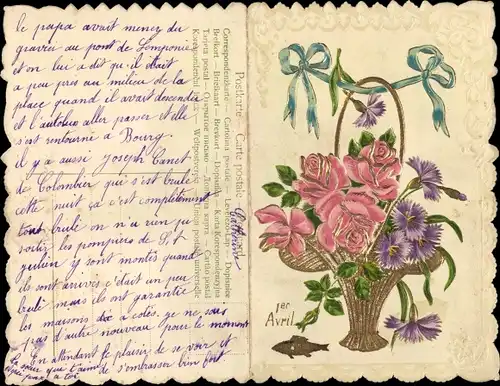 le papa avait menez du
gravier au pont de
et on lui a dit qu'il était
a peu près au milieu de la
place quand il avait descendu
et l'autobus aller passer et elle
s'est retourné a Bourg.
il y a aussi Joseph Canet
de Colombier qui s'est brulé
cette nuit ça c'est complètement
tout brulé on n'a rien pu
sortir les pompiers de St
julien y sont montés quand
ils sont arrivés c'était un peu
brulé mais ils ont garantie
les maisons de cotés, je ne sais
pas d'autre nouveau pour le moment
En attendant le plaisir de se voir et
de s'embrasser bien fort
La sœur que t'aime
et qui pense a toi
Postkarte — Carte postale
Correspondenzkarte — Cartolina postale — Levelező-Lap — Dopisnice
Brefkort — Briefkaart — Brevkort — Dopisnica — Karta Korespondencyjna
Tarjeta postal — Открытое письмо — Дописна карта — Cartão postal
1er
Avril